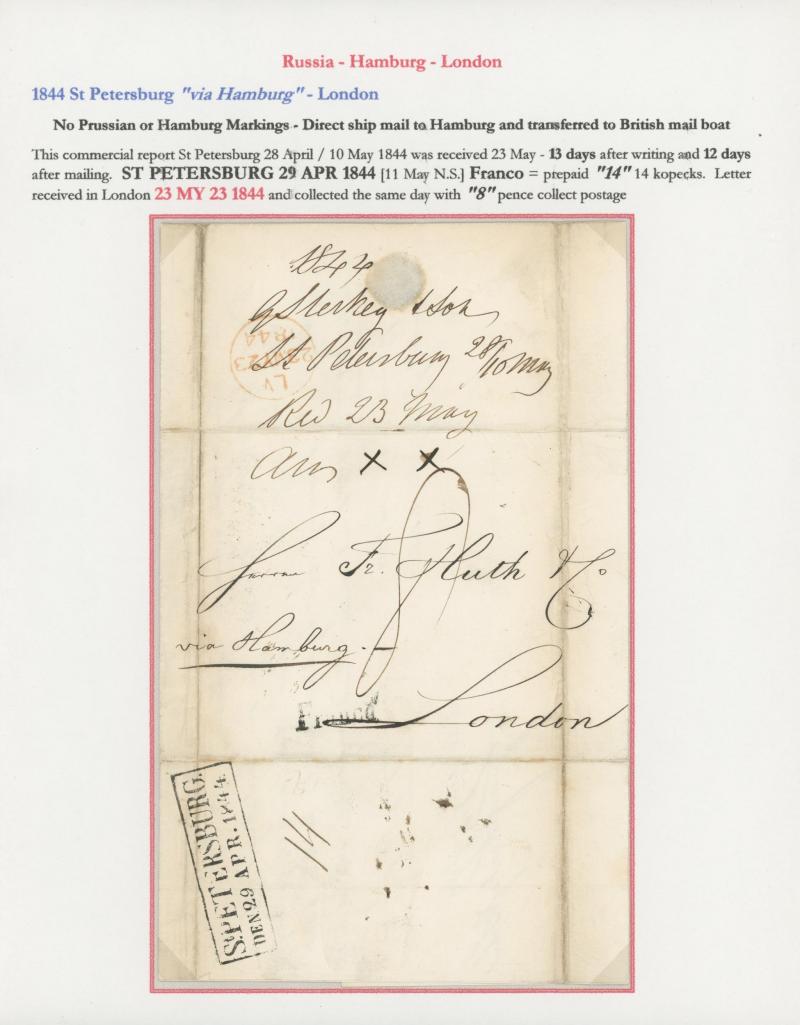 Russia - Hamburg - London
1844 St Petersburg "via Hamburg" - London
No Prussian or Hamburg Markings - Direct ship mail to Hamburg and transferred to British mail boat
This commercial report St Petersburg 28 April / 10 May 1844 was received 23 May - 13 days after writing and 12 days
after mailing. ST PETERSBURG 29 APR 1844 [11 May N.S.] Franco = prepaid "14" 14 kopecks. Letter
received in London 23 MY 23 1844 and collected the same day with "8" pence collect postage
1844
& Son
St Petersburg 28/10 May
LV
23MY23
1844
Red 23 May
Ans x x
8
Herren Fr. Huth & Co
via Hamburg. -
Franco
London
St. PETERSBURG.
DEN 29 APR. 1844.
14